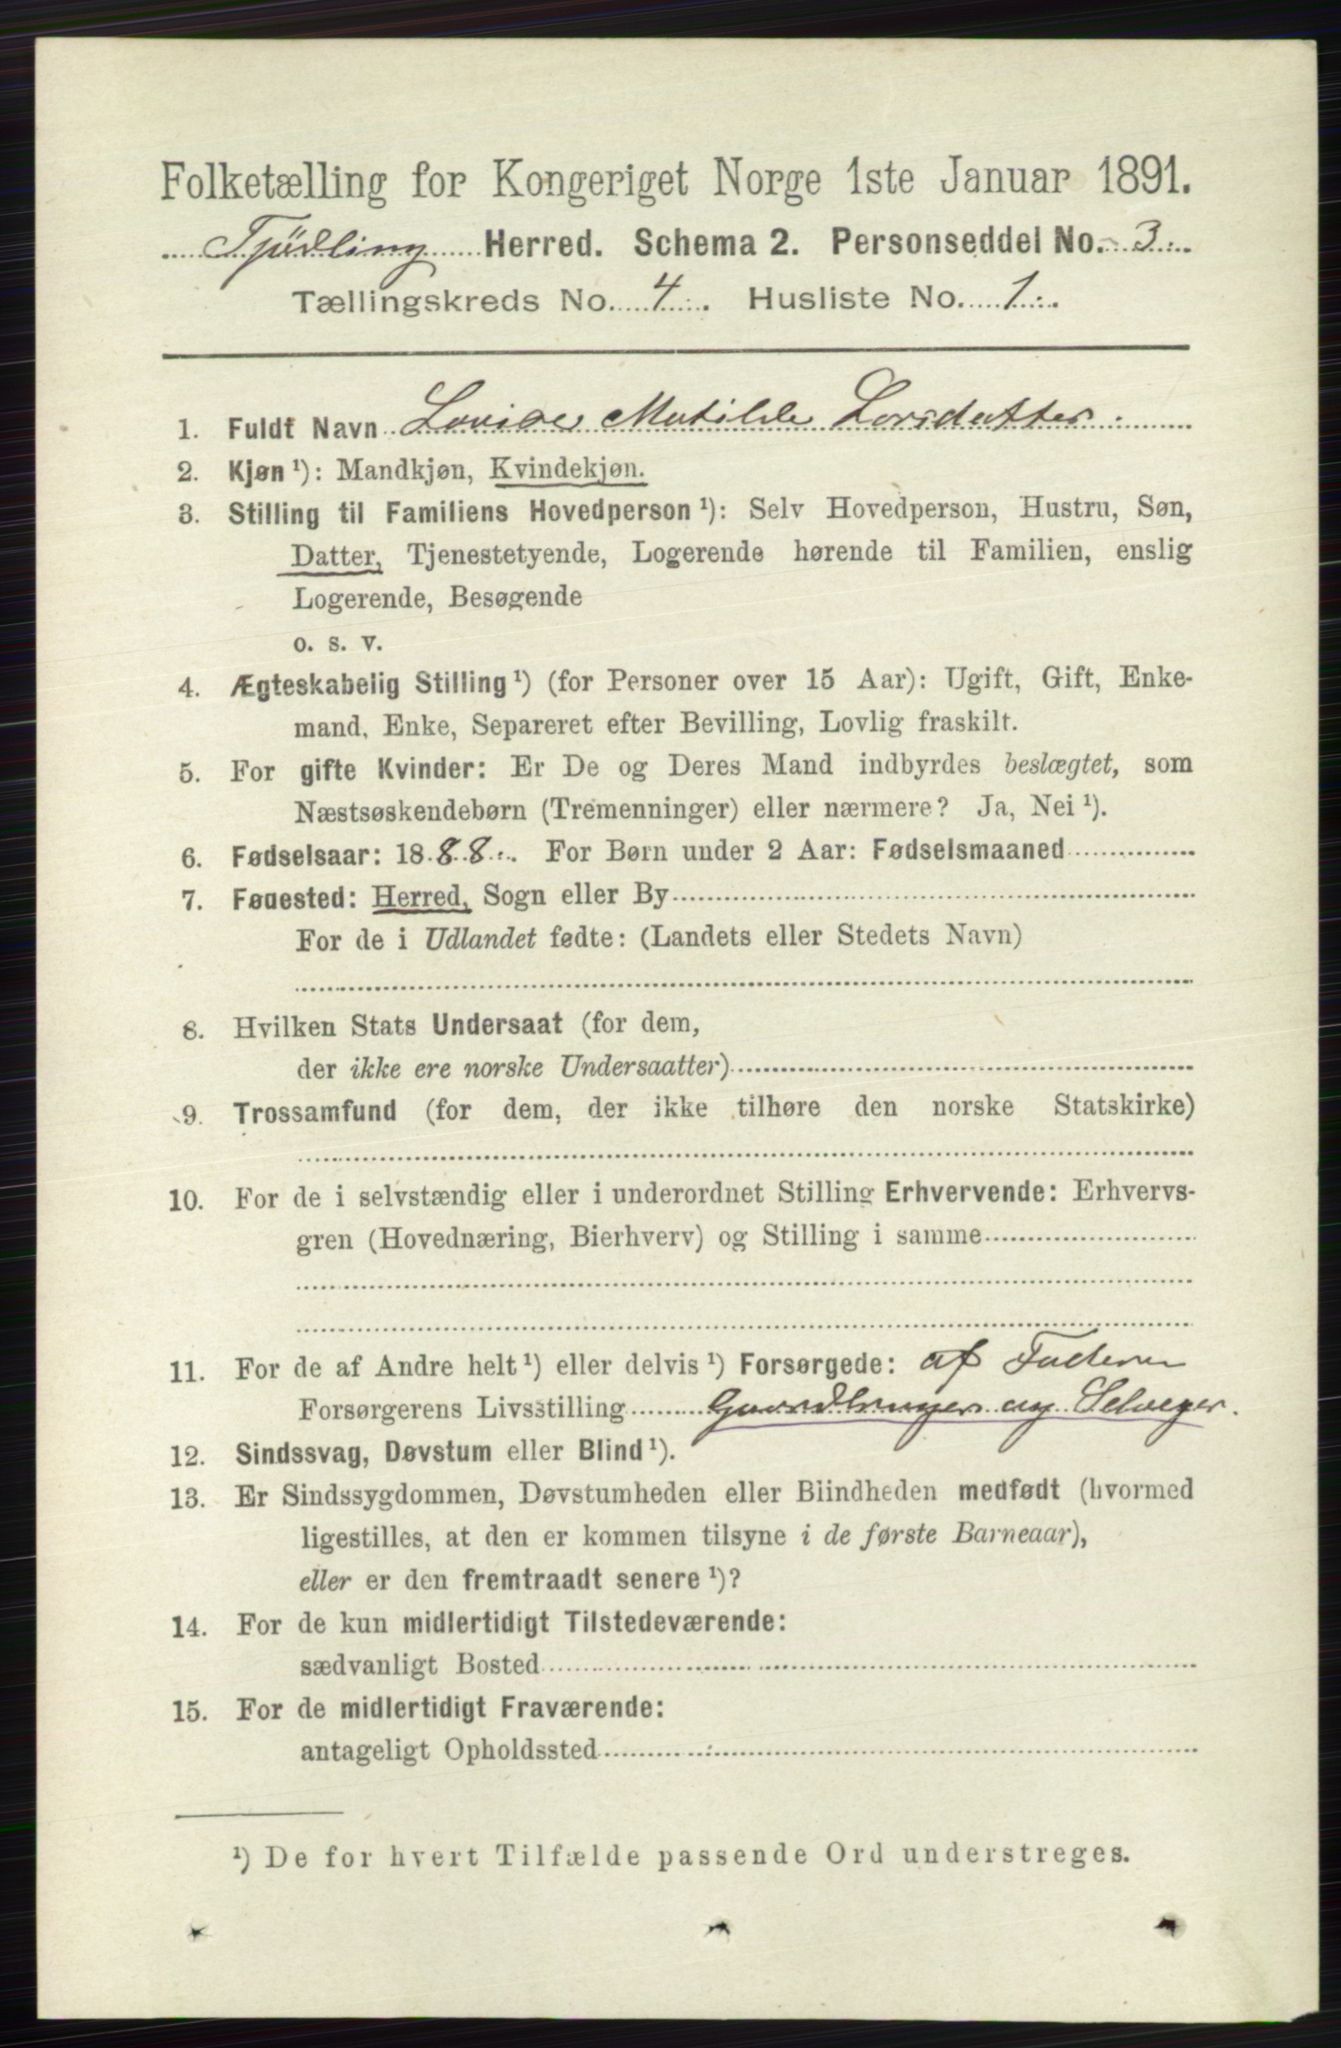 Folketælling for Kongeriget Norge 1ste Januar 1891.
Tjödling Herred. Schema 2. Personseddel No. 3.
Tællingskreds No. 4. Husliste No. 1.
1. Fuldt Navn Lovise Matilde Larsdatter.
2. Kjøn ¹): Mandkjøn, Kvindekjøn.
3. Stilling til Familiens Hovedperson ¹): Selv Hovedperson, Hustru, Søn,
Datter, Tjenestetyende, Logerende hørende til Familien, enslig
Logerende, Besøgende
o. s. v.
4. Ægteskabelig Stilling ¹) (for Personer over 15 Aar): Ugift, Gift, Enke-
mand, Enke, Separeret efter Bevilling, Lovlig fraskilt.
5. For gifte Kvinder: Er De og Deres Mand indbyrdes beslægtet, som
Næstsøskendebørn (Tremenninger) eller nærmere? Ja, Nei ¹).
6. Fødselsaar: 1888. For Børn under 2 Aar: Fødselsmaaned
7. Føuested: Herred, Sogn eller By
For de i Udlandet fødte: (Landets eller Stedets Navn)
8. Hvilken Stats Undersaat (for dem,
der ikke ere norske Undersaatter)
9. Trossamfund (for dem, der ikke tilhøre den norske Statskirke)
10. For de i selvstændig eller i underordnet Stilling Erhvervende: Erhvervs-
gren (Hovednæring, Bierhverv) og Stilling i samme
11. For de af Andre helt ¹) eller delvis ¹) Forsørgede: af Faderen
Forsørgerens Livsstilling Gaardbruger og Selveger.
12. Sindssvag, Døvstum eller Blind ¹).
13. Er Sindssygdommen, Døvstumheden eller Blindheden medfødt (hvormed
ligestilles, at den er kommen tilsyne i de første Barneaar),
eller er den fremtraadt senere ¹)?
14. For de kun midlertidigt Tilstedeværende:
sædvanligt Bosted
15. For de midlertidigt Fraværende:
antageligt Opholdssted
¹) De for hvert Tilfælde passende Ord understreges.